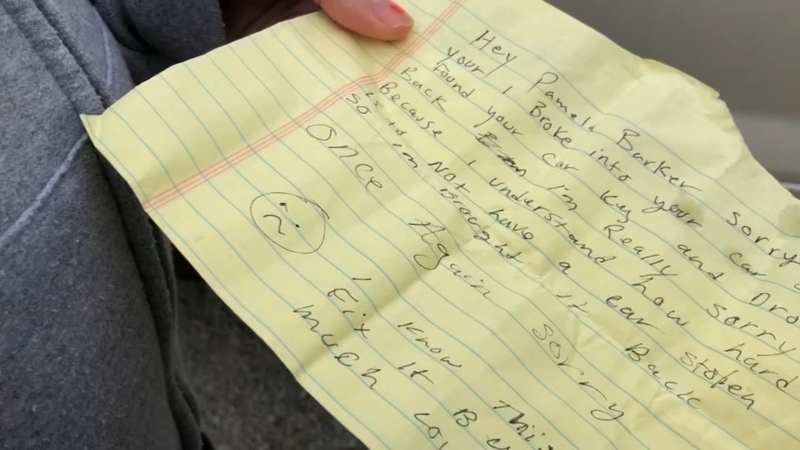 Hey Pamela Barker sorry
your I Broke into your car
Found your car key and Dro
Back I'm Really sorry
Because I understand how hard
is it Not have a car stolen
So im Brought it Back
Once Again sorry
I know This
Fix It B
much